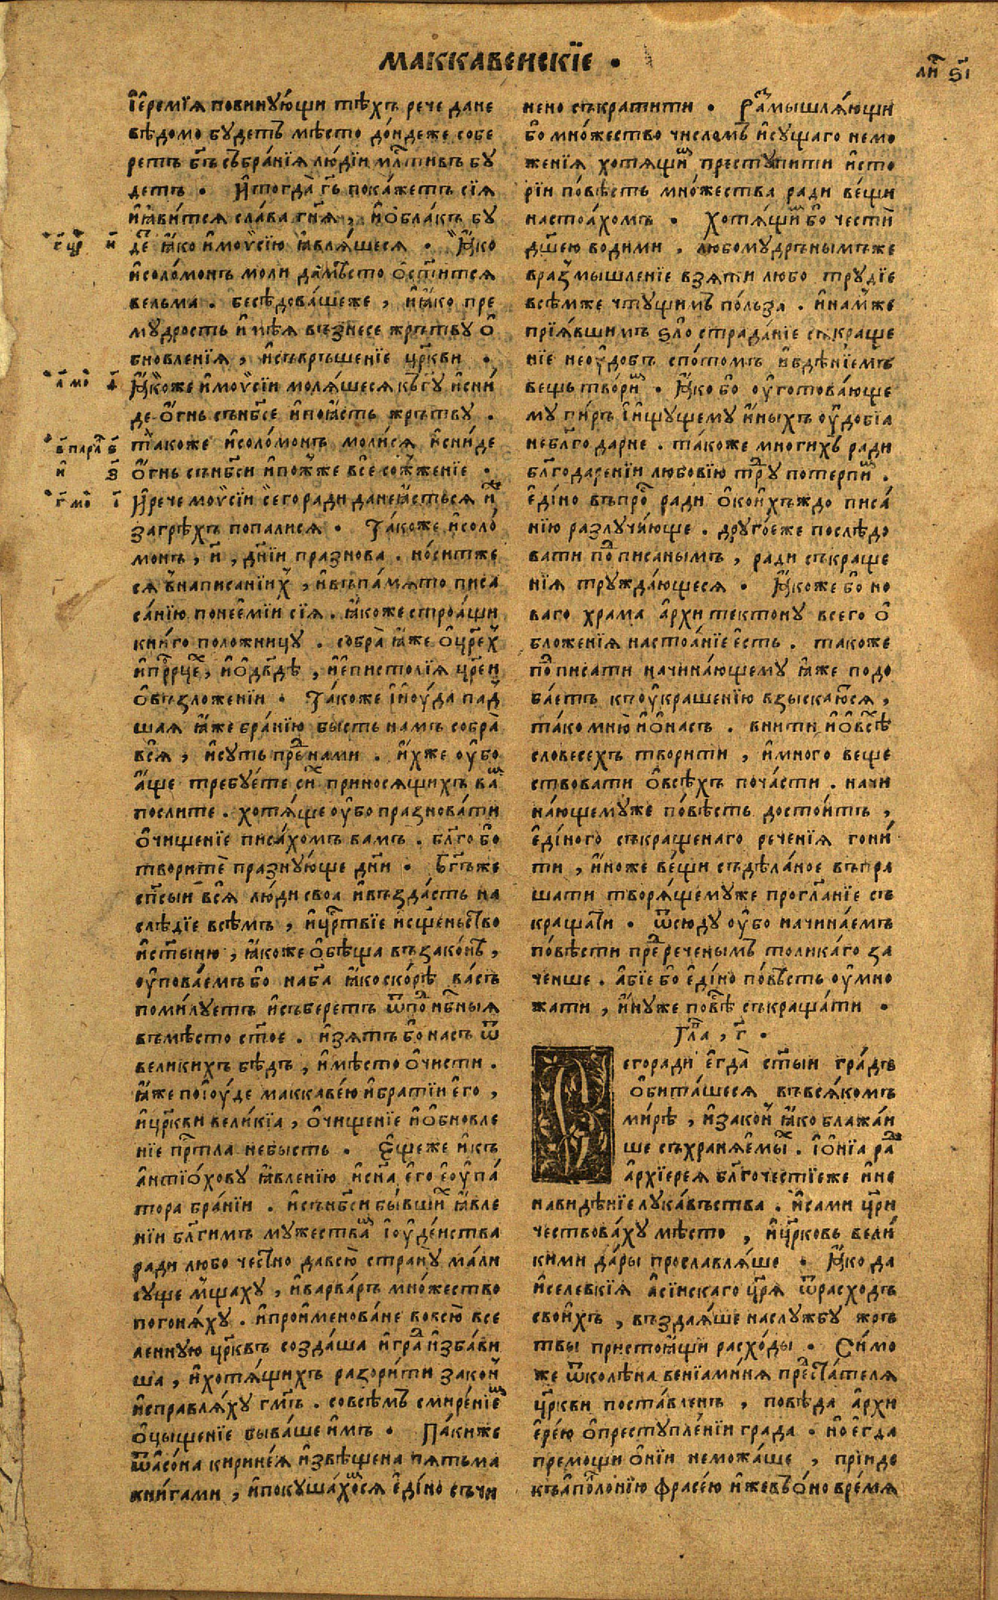 маккавеискїе .
ли҃ ѕ҃ı
і҆еремїꙗ повинꙋ́ющи тѣ́хъ рече дане
вѣдомо бꙋдетъ мѣсто до́ндеже собе
ретъ бг҃ъ събра́нїѧ лю́дїи мл҃тивъ бꙋ
детъ . И҆тогда̀ гь҃ пока́жетъ сїѧ
и҆ꙗ҆витсѧ сла́ва гн҃ѧ , и҆о҆́блакъ бꙋ
де ꙗ҆́ко и҆моѵсїю ꙗ҆влѧ́шесѧ . Ꙗ҆́ко
и҆соло́монъ моли дамѣсто ос҃титсѧ
вельма . бесѣдова́шеже , и҆ꙗ҆́ко пре
мꙋдрость и҆мѣѧ възнесе жрътвꙋ о҆
бновленїѧ , и҆съвръше́нїе цр҃кви .
Ꙗ҆́коже и҆моѵсїи молѧ́шесѧ къбг҃ꙋ и҆сни
де ѻ҆гнь сънб҃се и҆поꙗ҆сть жрътвꙋ .
та́коже и҆соло́монъ моли́сѧ и҆сни́де
ѻ҆́гнь сънб҃си и҆по́ꙗже все сож҃женїе .
И҆рече моѵсїи сегоради данеꙗ҆стьсѧ и҆
загрѣ́хъ попалисѧ . Та́коже и҆соло́
монъ , и҃ , дн҃їи празнова . но́ситже
сѧ внаписанїих , и҆въпа́мѧто писа
са́нїю понее҆мїи сїѧ . ꙗ҆́коже строѧ́щи
кни́го положницꙋ . собра̀ ꙗ҆́же ѻ҆цр҃ех
и҆прⷪр҃це , и҆ѻ҆дв҃дѣ , и҆е҆пистолїѧ цр҃еи
ѻ҆възложенїи . Та́коже і҆и҆ѹ́да пад
шаѧ ꙗ҆́же бра́нїю бысть намъ собра̀
всѧ̀ , и҆сꙋть пренами . и҆́хже ѹ҆бо
а҆́ще требꙋ́ете си приносѧщихъ ва
послите . хотѧ́ще ѹ҆бо празнова́ти
ѻ҆чищенїе писа́хомъ вамъ . бл҃го бо
творитѐ празнꙋ́юще дн҃и . Бг҃ъже
сп҃сыи всѧ̀ лю́ди своа и҆възда́сть на
слѣ́дїе всѣмъ , и҆цр҃твїе и҆сщ҃еньство
и҆ст҃ыню , ꙗ҆́коже ѻ҆бѣща въза́конъ ,
ѹ҆пова́емъ бо набг҃а ꙗ҆́коско́рѣ васъ
поми́лꙋетъ и҆съберетъ ѿпо нб҃ныѧ
въмѣсто ст҃ое . и҆зѧтъ бо насъ ѿ
великихъ бѣдъ , и҆мѣсто ѻ҆чисти .
ꙗ҆́же поі҆ю́де маккаве́ю и҆братїи е҆го ,
и҆цр҃кви великїа , ѻ҆чищенїе и҆ѻ҆бновле
нїе пртла небысть . Е҆щеже и҆къ
а҆нтїо́ховꙋ ꙗ҆вленїю и҆сн҃а е҆го е҆ѵпа́
тора бра́нїи . и҆сънб҃си бы́вши ꙗ҆вле
нїи бл҃гимъ мꙋжества і҆ѹде́иства
ради любо чес҃тно давсю̀ странꙋ̀ ма́ли
сꙋще м҃щахꙋ , и҆варва́ръ мно́жество
погонѧ́хꙋ . и҆проименова́не воксю̀ все
леннꙋю цр҃квъ созда́ша и҆гра и҆зба́ви
ша , и҆хотѧ́щихъ разорити закон
и҆справлѧ́хꙋ гм҃ъ . совсѣмъ смире́нїе
ѻ҆чыщенїе быва́ше и҆мъ . Па́киже
ѿа҆со́на кирине́ѧ и҆звѣщена пѧтьма
книгами , и҆покꙋша́хосѧ е҆ди́но съчи
нено съкратити . Размышлѧ́ющи
бо мно́жество число́мъ и҆сꙋщаго немо
женїѧ хотѧ́щи престꙋпити и҆сто
рїи по́вѣсть мно́жества ради ве́щи
настоѧ́хомъ . хотѧ́щи бо чести
дш҃ею водими . любомꙋдръ́нымъже
вразмышленїе взѧти любо трꙋдїе
всѣмже чтꙋщимъ по́льза . и҆намже
прїѧ́вшимъ ѕло страда́нїе съкраще
нїе неꙋ҆добъ спо́томъ и҆бдѣнїемъ
вещь твори . Ꙗ҆́ко бо ѹ҆готова́юще
мꙋ пиръ и҆и҆щꙋщемꙋ и҆ныхъ ѹ҆добїа
небл҃го дарне . та́коже многихъ ради
бл҃годаренїи любо́вїю трꙋ потерпи .
е҆ди́но въпро ради ѻ҆ко́ихъждо писа́
нїю разлꙋча́юще . дрꙋго́еже послѣдо
вати по писанымъ , ради съкраще
нїѧ трꙋжда́ющесѧ . Ꙗ҆́коже бо но
ваго храма а҆рхитектонꙋ всего ѻ҆
бложенїѧ настоѧ́нїе е҆сть . такоже
по писати начина́ющемꙋ ꙗ҆́же подо
ба́етъ къѹ҆крашенїю взыска́ютсѧ ,
та́ко мню̀ и҆ѻ҆насъ . внити и҆ѻ҆всѣ
словесехъ творити , и҆много веще
ствовати ѻ҆всѣхъ поча́сти . начи
на́ющемꙋже по́вѣсть досто́итъ ,
е҆ди́ного съкращенаго реченїѧ гони́
ти , и҆́ноже ве́щи съдѣ́ланое въпра
шати творѧ́щемꙋже прогла́нїе съ
краща́ти . ѿсю́дꙋ ѹ҆бо начина́емъ
по́вѣсти пререче́нымъ толика́го за
ченше . а҆бїе бо е҆ди́но по́вѣсть ѹ҆мно
жати , и҆́нꙋже по́вѣ съкраща́ти .
Гла , г҃ .
Сегоради е҆гда̀ ст҃ыи гра́дъ
ѻ҆бита́шесѧ въвсѧкомъ
ми́рѣ , и҆закон ꙗ҆ко блажа́и
ше съхранѧ́емы . і҆ѻ҆нїа ра
а҆рхїереѧ бл҃гочестїеже и҆не
навидѣнїе лꙋка́въства . и҆сами цр҃и
чествова́хꙋ мѣсто , и҆цр҃ковь вели
кими да́ры прославлѧ́ше . Ꙗ҆́ко да
и҆селевкїѧ а҆сі́искаго цр҃ѧ ѿрасходъ
свои́хъ , въздаѧ́ше наслꙋжбꙋ жръ
твы пристоѧ́щи расхо́ды . Си́мо
же ѿколѣ́на венїами́нѧ прест҃ателѧ
цр҃кви поста́вленъ , повѣ́да а҆рхи
е҆ре́ю ѻ҆престꙋпле́нїи града . но е҆гда
премощи ѻ҆нїи немо́жаше , прїиде
къа҆поло́нїю фрасе́ю и҆жевъо́но вре́мѧ